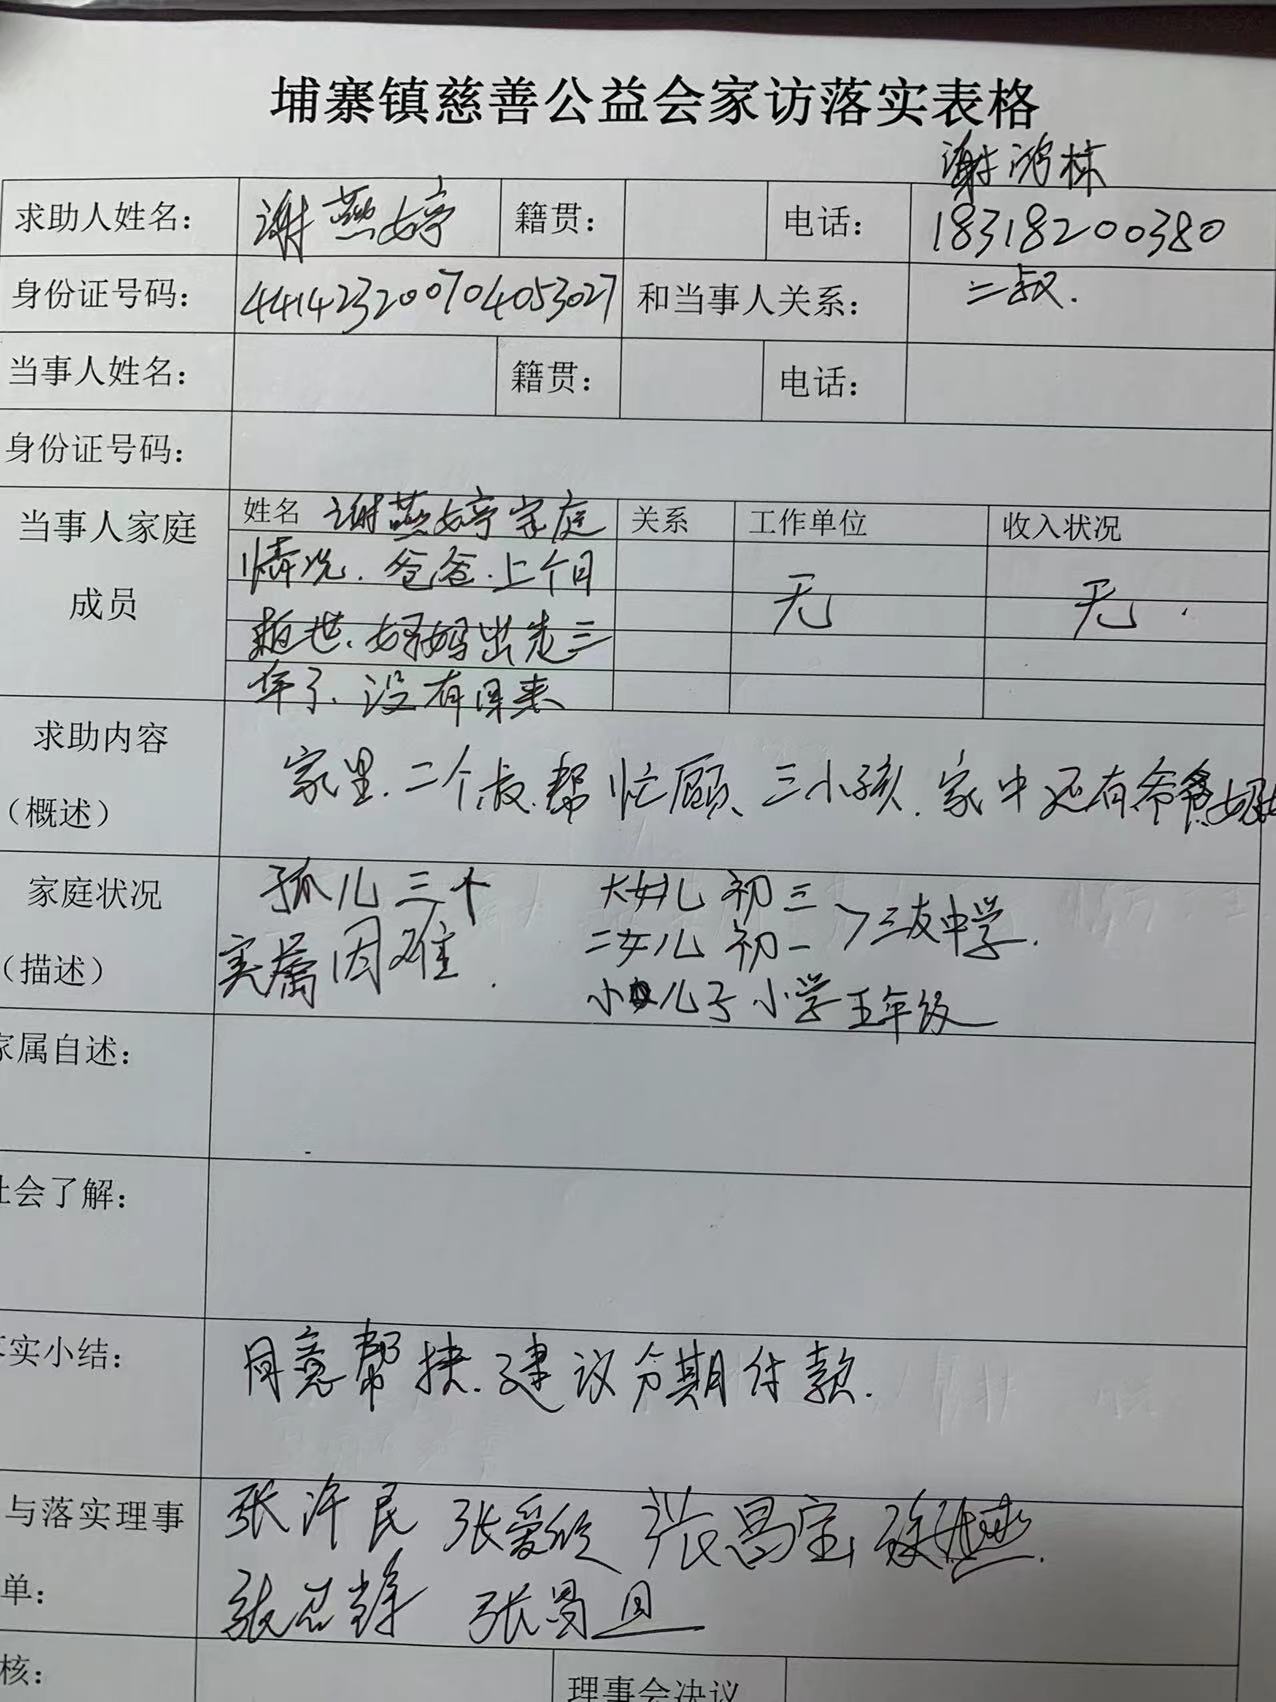 埔寨镇慈善公益会家访落实表格
谢鸿林
求助人姓名： 谢燕婷 籍贯： 电话： 18318200380
身份证号码： 441423200704053027 和当事人关系： 二叔.
当事人姓名： 籍贯： 电话：
身份证号码：
当事人家庭成员 姓名 谢燕婷家庭 关系 工作单位 收入状况
情况.爸爸.上个月 无 无.
世.妈妈出走三
年了.没有回来
求助内容
（概述）
家里.二个叔.帮忙顾、三小孩.家中还有爷爷
家庭状况
（描述）
孤儿三个 大女儿 初三
实属困难. 二女儿 初一 >三友中学.
小儿子 小学五年级
家属自述：
社会了解：
实小结： 同意帮扶.建议分期付款.
与落实理事
单：
张 民 张爱 张昌宝
张 张昌
核： 理事会决议